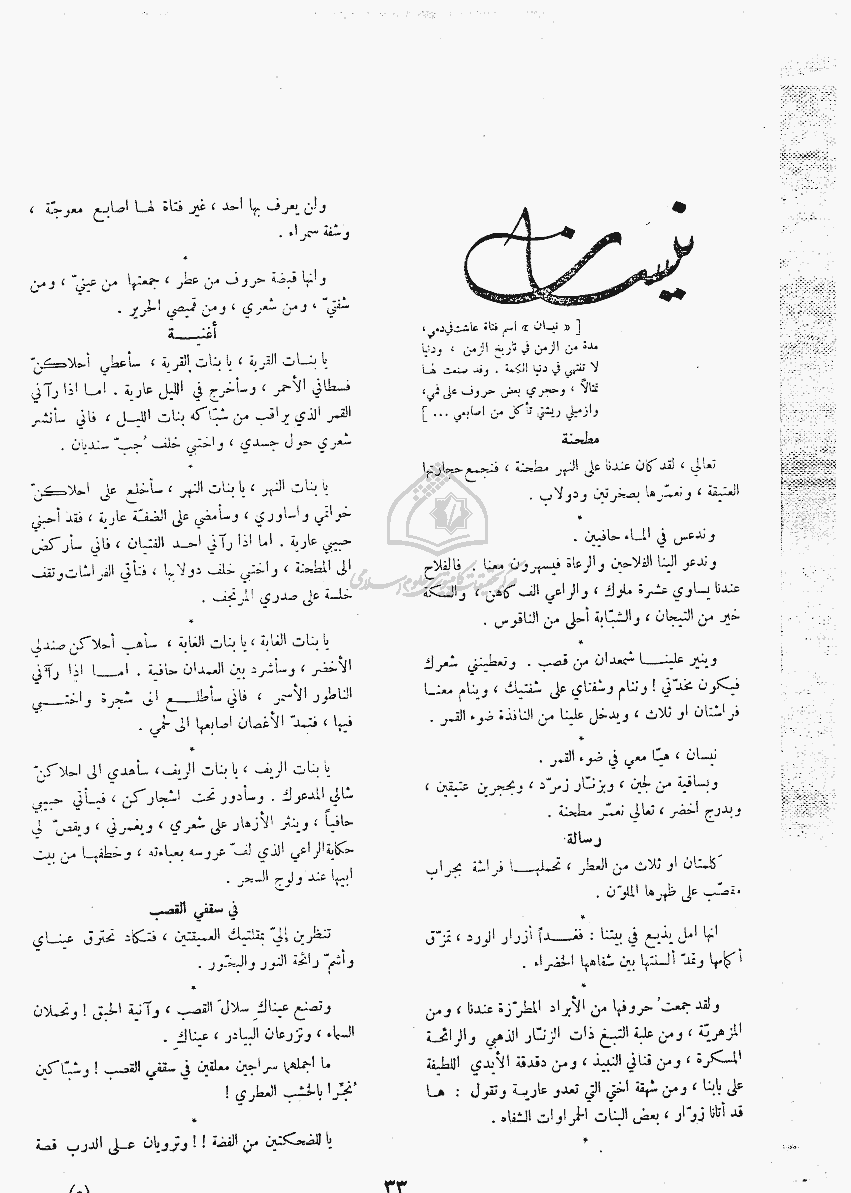 نيسان
[ « نيسان » اسم فتاة عاشت في دمي ،
مدة من الزمن في تاريخ الزمن ، ودنيا
لا تنتهي في دنيا الكلمة . وقد صنعت لها
تمثالاً ، وحجري بعض حروف على فمي ،
وازميلي ريشتي تأكل من اصابعي ... ]
مطحنة
تعالي ، لقد كان عندنا على النهر مطحنة ، فنجمع حجارتها
العتيقة ، ونعمّرها بصخرتين ودولاب .
*
وندعس في الماء حافيين .
وندعو الينا الفلاحين والرعاة فيسهرون معنا . فالفلاح
عندنا يساوي عشرة ملوك ، والراعي الف كاهن ، والسكة
خير من التيجان ، والشبّابة أحلى من الناقوس .
*
وينير علينا شمعدان من قصب . وتعطينني شعرك
فيكون مخدّتي ! وننام وشفتاي على شفتيك ، وينام معنا
فراشتان او ثلاث ، ويدخل علينا من النافذة ضوء القمر .
*
نيسان ، هيّا معي في ضوء القمر .
وبساقية من لجين ، وبزنّار زمرّد ، وبحجرين عتيقين ،
وبدرج اخضر ، تعالي نعمّر مطحنة .
رسالة
كلمتان او ثلاث من العطر ، تحملها فراشة بجراب
مقصّب على ظهرها الملوّن .
*
انها امل يذيع في بيتنا : فغداً أزرار الورد ، تمزّق
أكمامها وتمدّ ألسنتها بين شفاهها الخضراء .
*
ولقد جمعت حروفها من الأبراد المطرّزة عندنا ، ومن
المزهريّة ، ومن علبة التبغ ذات الزنّار الذهبي والرائحة
المسكرة ، ومن قناني النبيذ ، ومن دقدقة الأيدي اللطيفة
على بابنا ، ومن شهقة اختي التي تعدو عارية وتقول : ها
قد أتانا زوّار ، بعض البنات الحمراوات الشفاه .
*
ولن يعرف بها احد ، غير فتاة لها اصابع معوجّة ،
وشفة سمراء .
*
وانها قبضة حروف من عطر ، جمعتها من عينيّ ، ومن
شفتيّ ، ومن شعري ، ومن قميصي الحرير .
أغنية
يا بنات القرية ، يا بنات القرية ، سأعطي أحلاكنّ
فسطاني الأحمر ، وسأخرج في الليل عارية . اما اذا رآني
القمر الذي يراقب من شبّاكه بنات الليل ، فاني سأنشر
شعري حول جسدي ، واختبي خلف جُبّ سنديان .
*
يا بنات النهر ، يا بنات النهر ، سأخلع على احلاكنّ
خواتمي واساوري ، وسأمضي على الضفّة عارية ، فقد أحبني
حبيبي عارية . اما اذا رآني احد الفتيان ، فاني سأركض
الى المطحنة ، واختبي خلف دولابها ، فتأتي الفراشات وتقف
خلسة على صدري المرتجف .
*
يا بنات الغابة ، يا بنات الغابة ، سأهب أحلاكن صندلي
الأخضر ، وسأشرد بين العمدان حافية . اما اذا رآني
الناطور الأسمر ، فاني سأطلع الى شجرة واختبي
فيها ، فتمدّ الأغصان اصابعها الى لحمي .
*
يا بنات الريف ، يا بنات الريف ، سأهدي الى احلاكنّ
شالي المدعوك . وسأدور تحت اشجاركن ، فيأتي حبيبي
حافياً ، وينثر الأزهار على شعري ، ويغمرني ، ويقصّ لي
حكاية الراعي الذي لفّ عروسه بعباءته ، وخطفها من بيت
ابيها عند ولوج السحر .
في سقفي القصب
تنظرين إليّ بمقلتيك العميقتين ، فتكاد تحترق عيناي
وأشمّ رائحة النور والبخّور .
*
وتصنع عيناكِ سلالَ القصب ، وآنية الحبق ! وتحملان
السماء ، وتزرعان البيادر ، عيناكِ .
ما اجملهما سراجين معلقين في سقفي القصب ! وشبّاكين
نُجّرا بالخشب العطري !
*
يا للضحكتين من الفضة !! وترويان على الدرب قصة
٣٣
(٥)